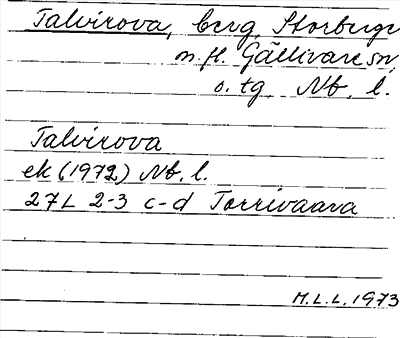 Talvirova, berg, Storberget
m.fl. Gällivare sn,
o. tg Nb. l.
Talvirova
ek (1972) Nb. l.
27L 2-3 c-d Torrivaara
M.L.L. 1973